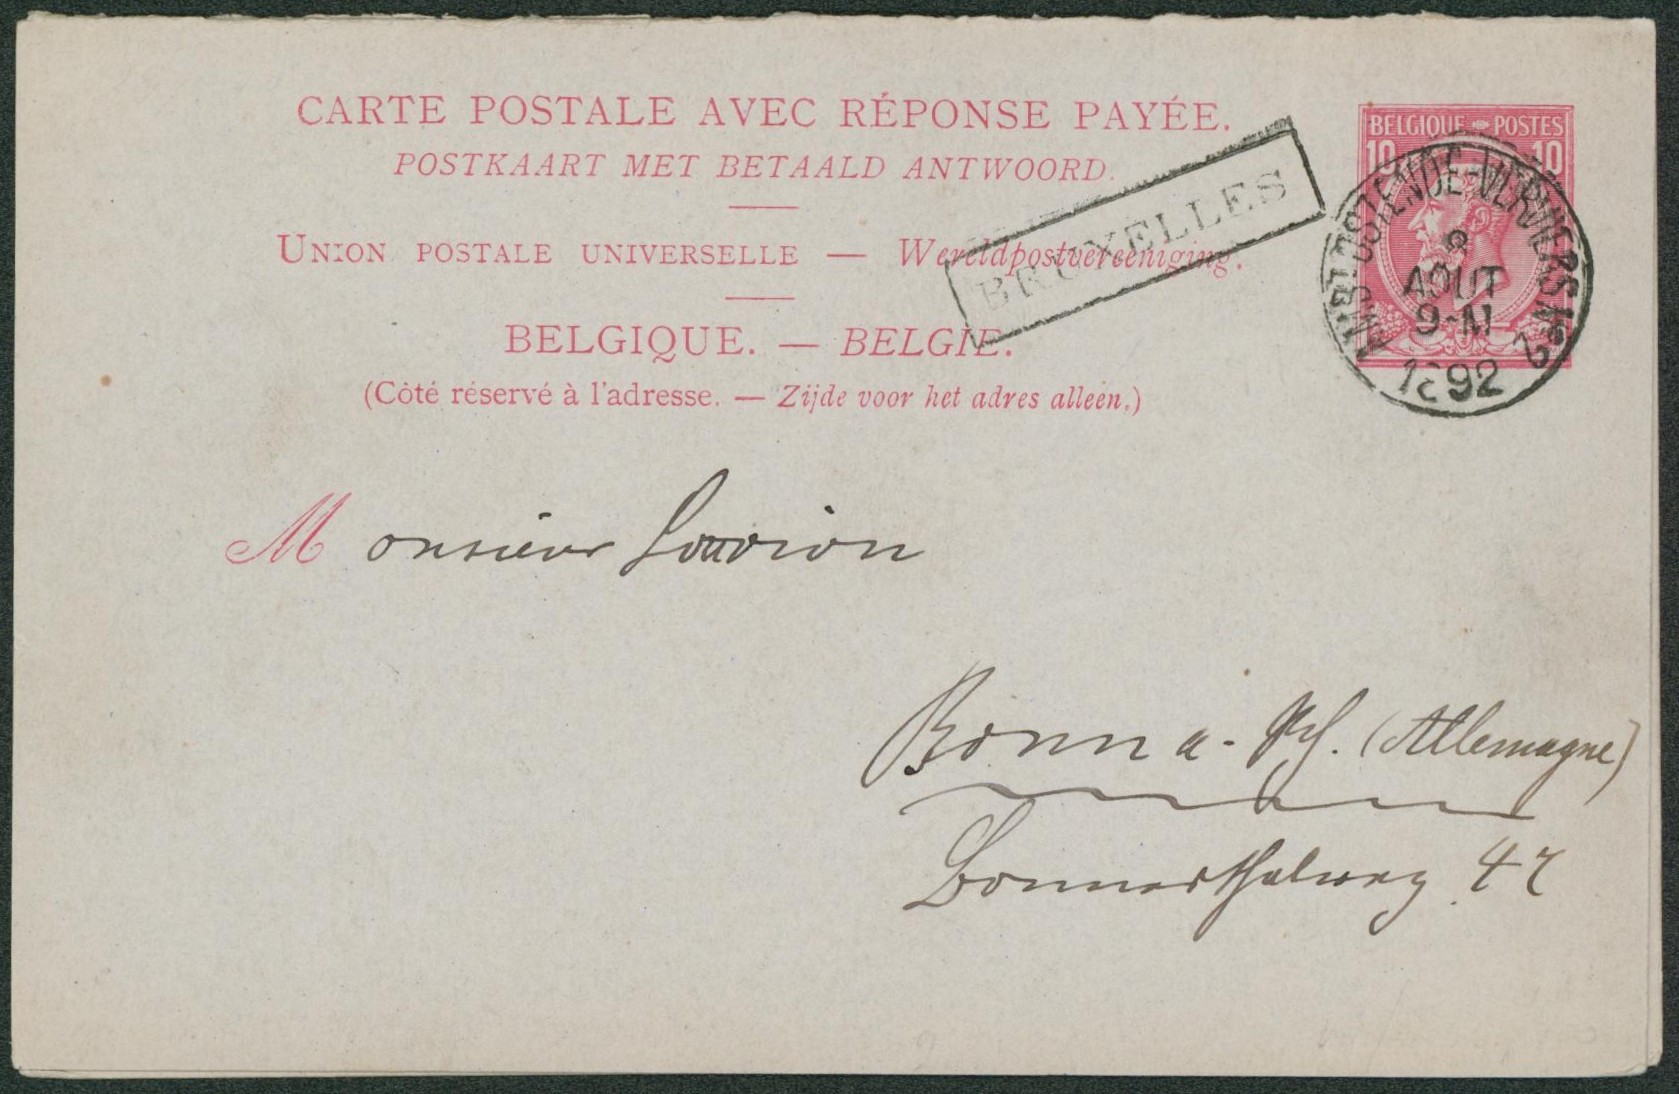 CARTE POSTALE AVEC RÉPONSE PAYÉE.
POSTKAART MET BETAALD ANTWOORD.
UNION POSTALE UNIVERSELLE — Wereldpostvereeniging.
BELGIQUE. — BELGIE.
(Côté réservé à l'adresse. — Zijde voor het adres alleen.)
BRUXELLES
BELGIQUE POSTES
10 10
OSTENDE-VERVIERS No 2
AOUT
9-M
1892
Monsieur
Bonn a. Rh. (Allemagne)